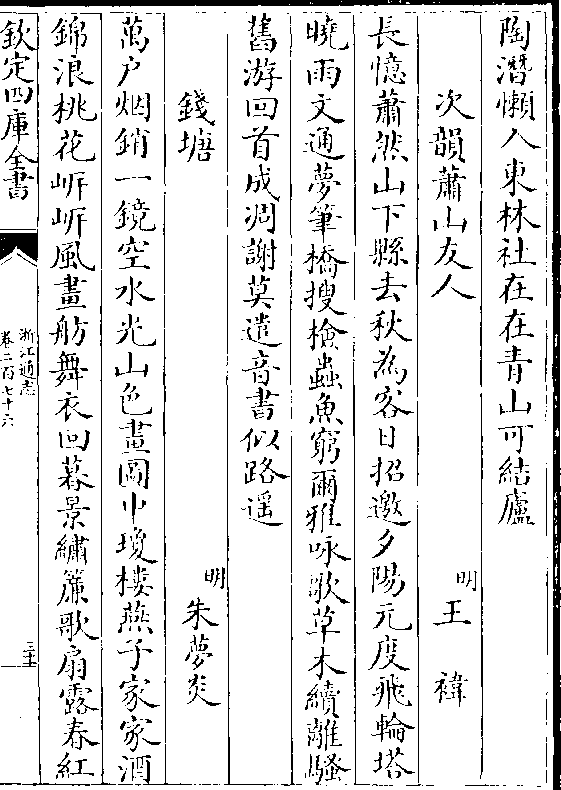 陶潛懶入東林社在在青山可結廬
次韻蕭山友人 明 王褘
長憶蕭然山下縣去秋為客日招邀夕陽元度飛輪塔
曉雨文通夢筆橋搜檢蟲魚窮爾雅咏歌草木續離騷
舊游回首成凋謝莫遣音書似路遥
錢塘 明 朱夢炎
萬户烟銷一鏡空水光山色畫圖中瓊樓燕子家家酒
錦浪桃花㟁㟁風畫舫舞衣回暮景繡簾歌扇露春紅
欽定四庫全書
浙江通志
卷二百七十六
三十